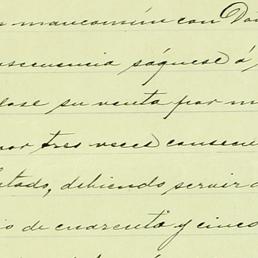 mancomún con Do
secuencia sáquese á p
lase su venta por m
por tres veces consecu
stado, debiendo servir d
io de cuarenta y cinco